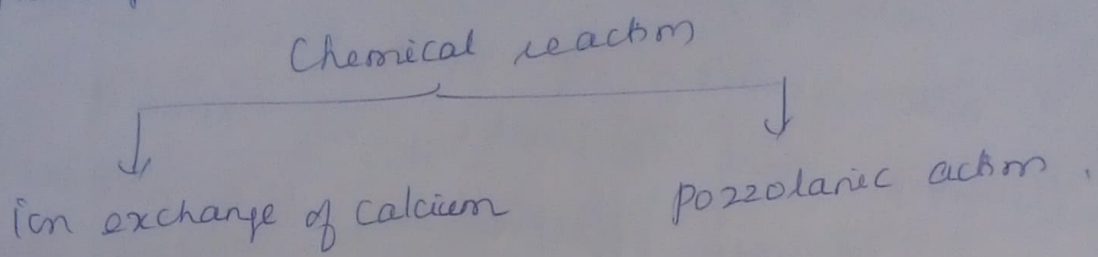 Chemical reaction
ion exchange of calcium
pozzolanic action.